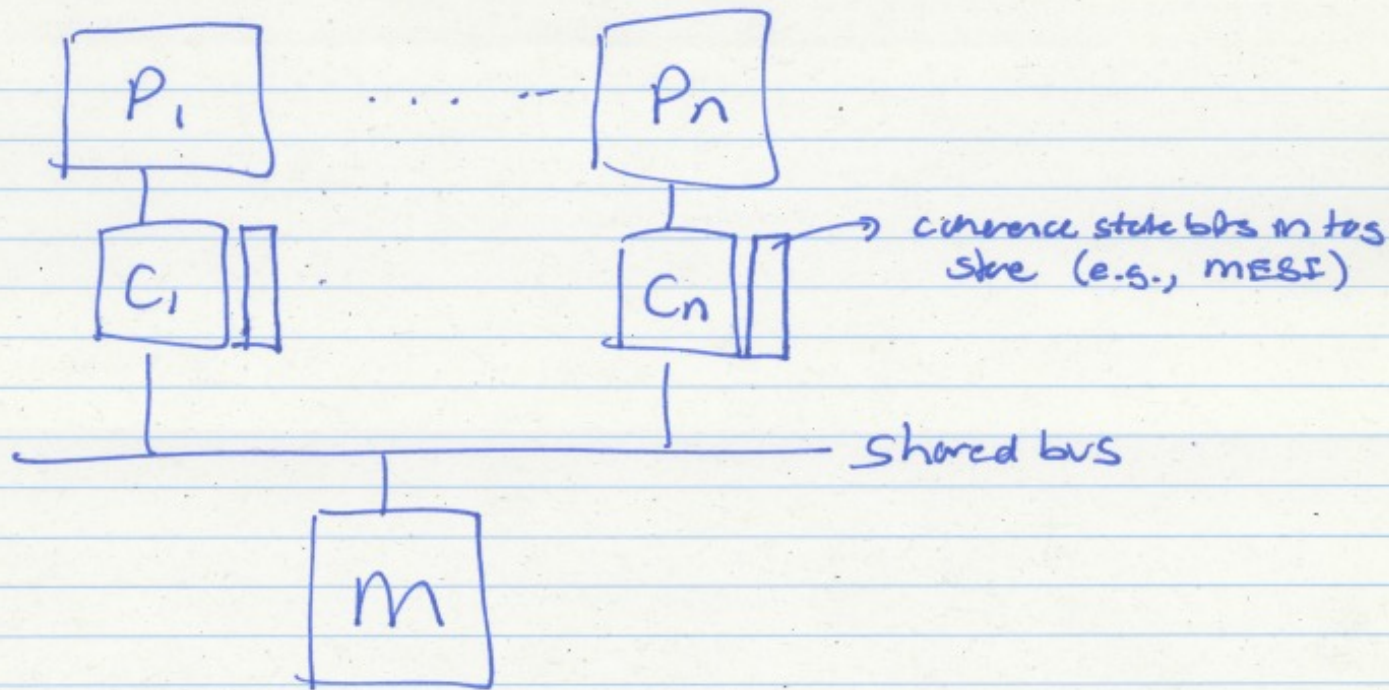 P1 .... -- Pn
C1
Cn
coherence state bits in tag
store (e.g., MESI)
Shared bus
M